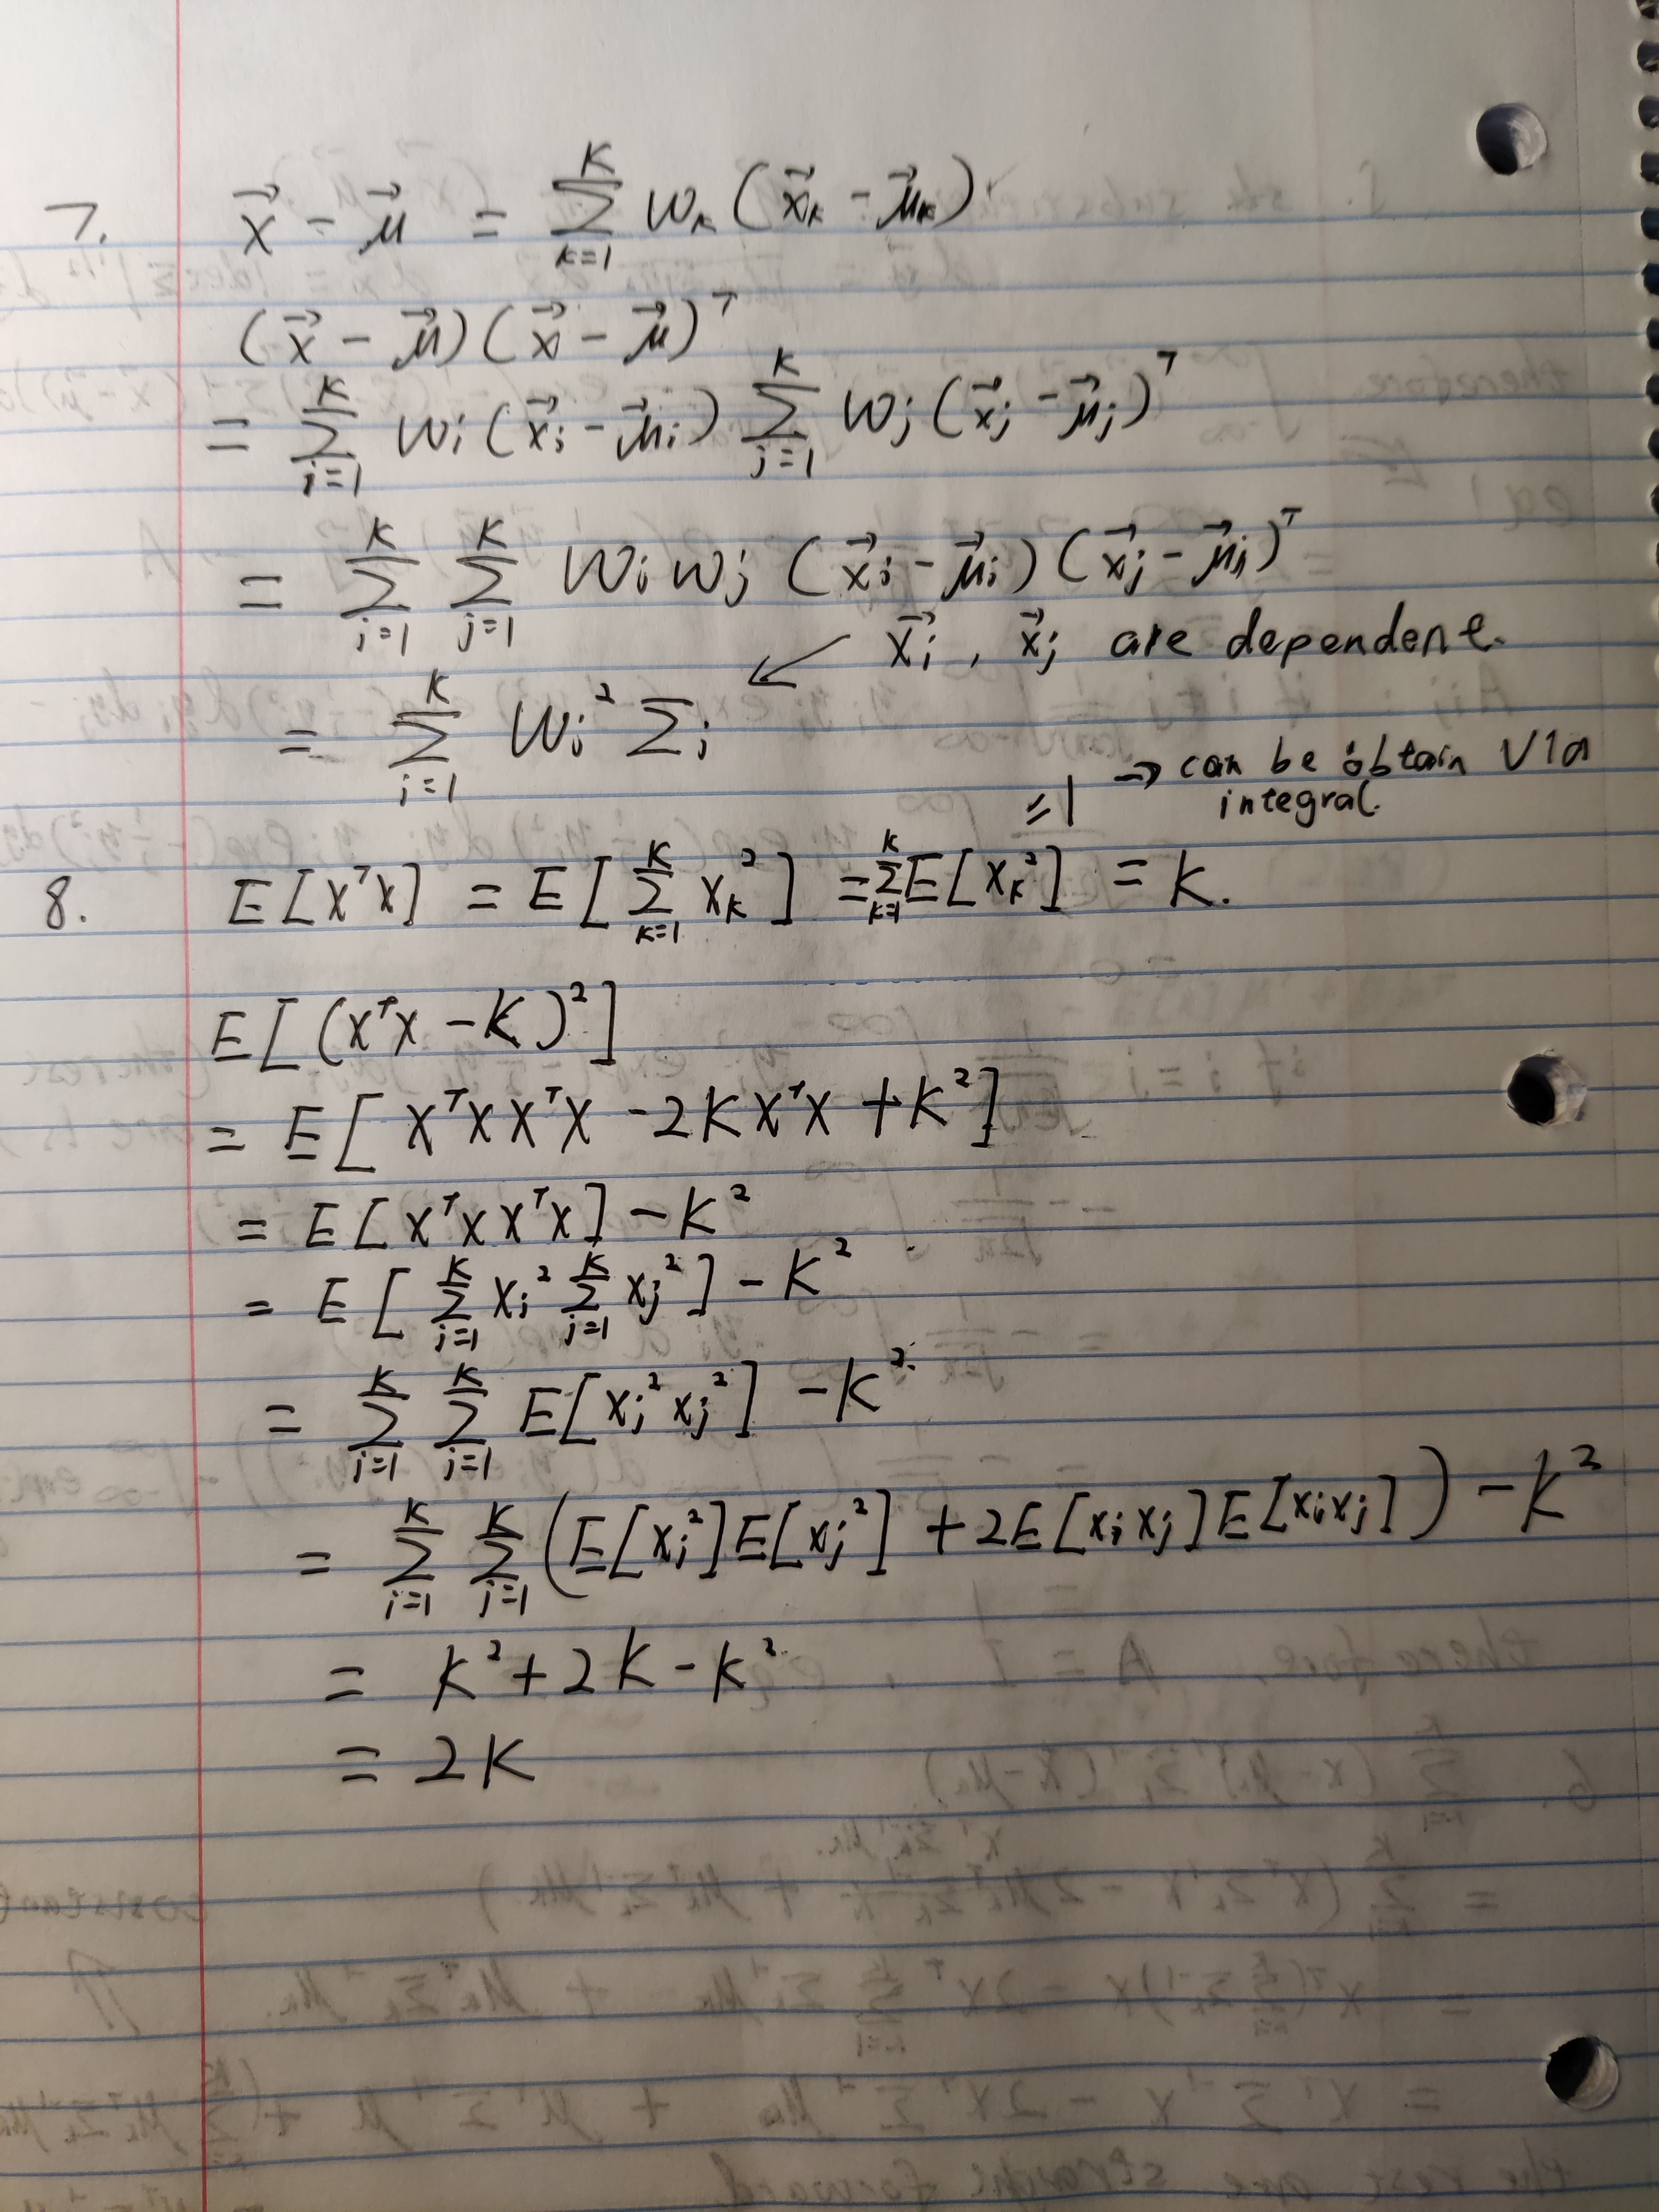 7. \vec{x} - \vec{μ} = \sum_{k=1}^{K} w_k (\vec{x}_k - \vec{μ}_k)
(\vec{x} - \vec{μ})(\vec{x} - \vec{μ})^T
= \sum_{i=1}^{K} w_i (\vec{x}_i - \vec{μ}_i) \sum_{j=1}^{K} w_j (\vec{x}_j - \vec{μ}_j)^T
= \sum_{i=1}^{K} \sum_{j=1}^{K} w_i w_j (\vec{x}_i - \vec{μ}_i)(\vec{x}_j - \vec{μ}_j)^T
↙ \vec{x}_i, \vec{x}_j are dependent.
= \sum_{i=1}^{K} w_i^2 Σ_i
=1 → can be obtain via
integral.
8. E[x^T x] = E[\sum_{k=1}^{K} x_k^2] = \sum_{k=1}^{K} E[x_k^2] = K.
E[(x^T x - K)^2]
= E[x^T x x^T x - 2K x^T x + K^2]
= E[x^T x x^T x] - K^2
= E[\sum_{i=1}^{K} x_i^2 \sum_{j=1}^{K} x_j^2] - K^2
= \sum_{i=1}^{K} \sum_{j=1}^{K} E[x_i^2 x_j^2] - K^2
= \sum_{i=1}^{K} \sum_{j=1}^{K} (E[x_i^2] E[x_j^2] + 2E[x_i x_j] E[x_i x_j]) - K^2
= K^2 + 2K - K^2
= 2K